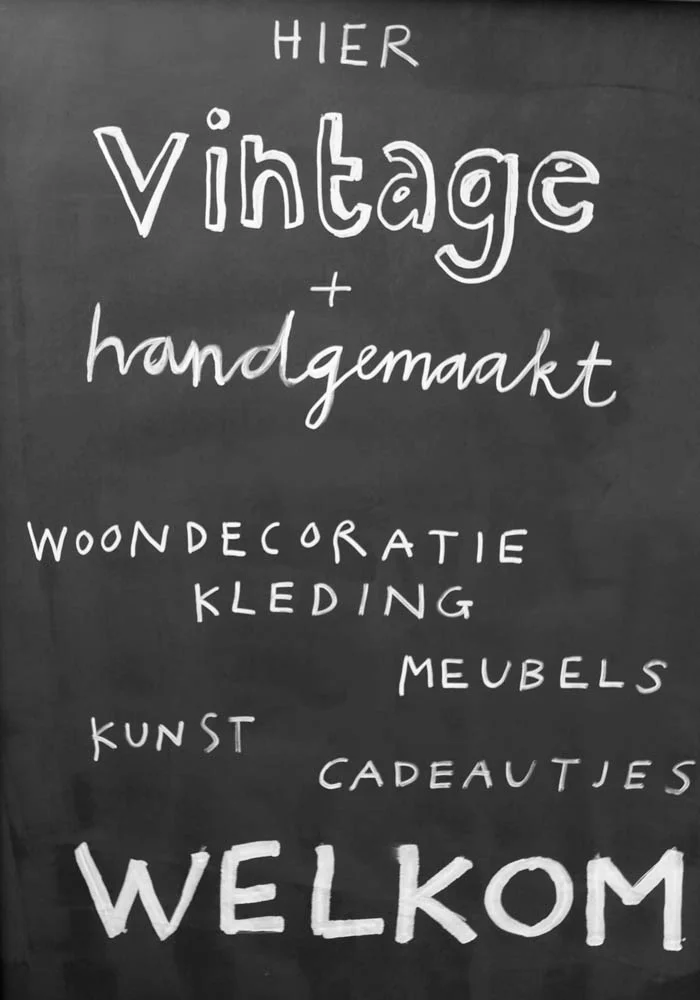 HIER
Vintage
+
handgemaakt
WOONDECORATIE
KLEDING
MEUBELS
KUNST
CADEAUTJES
WELKOM